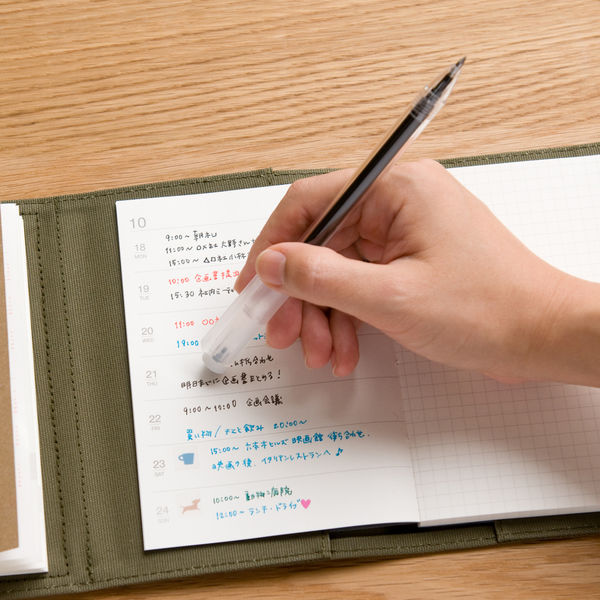 10
18 MON
9:00～ 朝礼
11:00～ 〇×社 大野さん
15:00～ △□社 小林
19 TUE
10:00 企画書提出
15:30 社内ミーティ
20 WED
11:00 〇〇
19:00
21 THU
打ち合わせ
明日までに企画書まとめる！
22 FRI
9:00～10:00 企画会議
買い物/ 20:00～
23 SAT
15:00～ 六本木ヒルズ 映画館 待ち合わせ.
映画の後、イタリアンレストランへ♪
24 SUN
10:00～ 動物病院
12:00～ ランチ・ドライブ♥